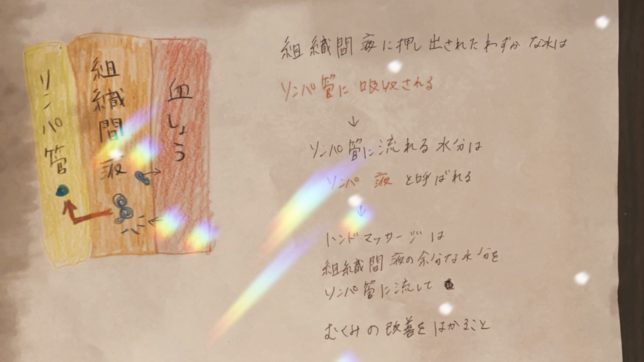 リンパ管
組織間液
血しょう
組織間液に押し出されたわずかな水は
リンパ管に吸収される
↓
リンパ管に流れる水分は
リンパ液と呼ばれる
↓
ハンドマッサージは
組織間液の余分な水分を
リンパ管に流して
むくみの改善をはかること